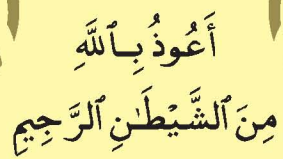 أَعُوذُ بِٱللَّهِ
مِنَ ٱلشَّيْطَـٰنِ ٱلرَّجِيمِ